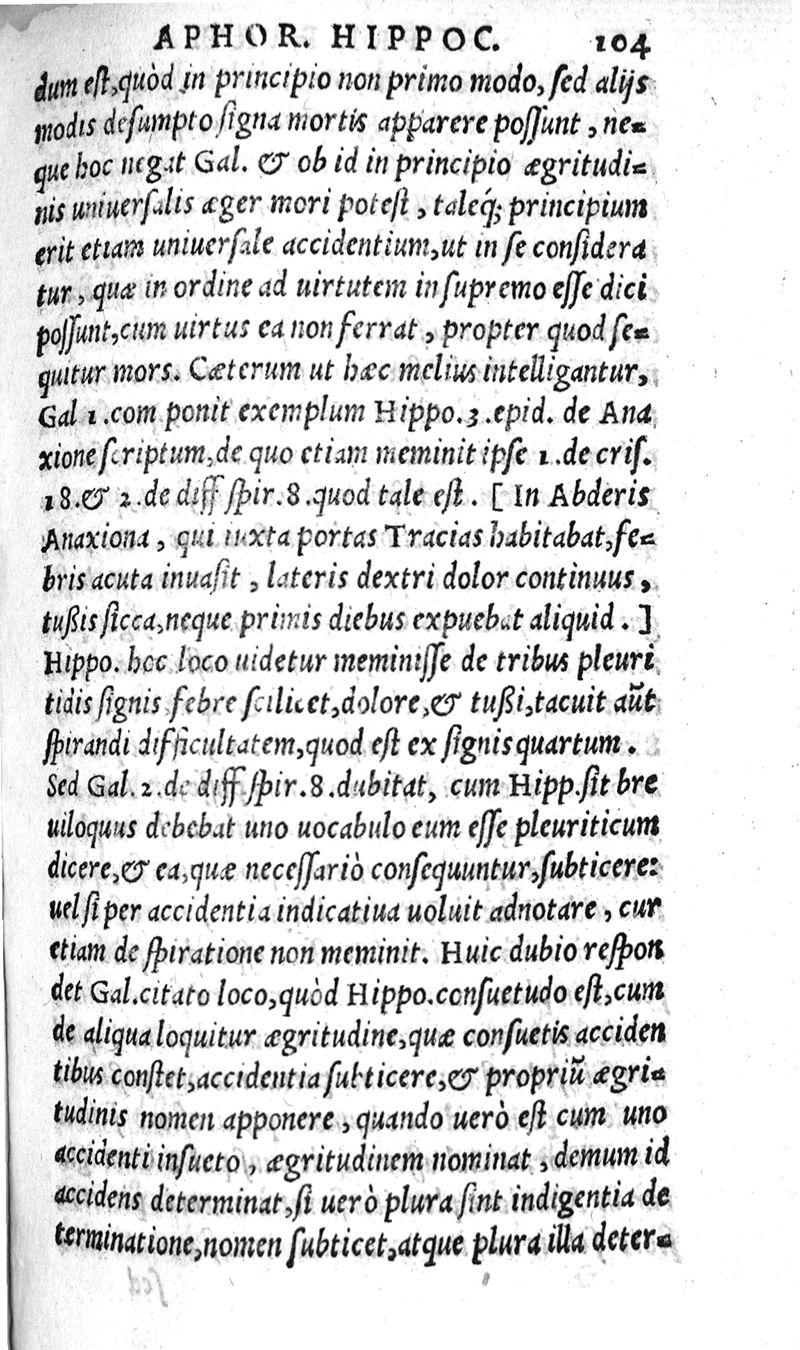 APHOR. HIPPOC. 104
dum est,quòd in principio non primo modo, sed alijs
modis desumpto signa mortis apparere possunt, ne=
que hoc negat Gal. & ob id in principio ægritudi=
nis uniuersalis æger mori potest, taleq́; principium
erit etiam uniuersale accidentium,ut in se considera
tur, quæ in ordine ad uirtutem in supremo esse dici
possunt,cum uirtus ea non ferrat, propter quod se=
quitur mors. Cæterum ut hæc melius intelligantur,
Gal 1.com ponit exemplum Hippo.3.epid. de Ana
xione scriptum,de quo etiam meminit ipse 1.de cris.
18.& 2.de diff spir.8.quod tale est. [ In Abderis
Anaxiona, qui iuxta portas Tracias habitabat,fe=
bris acuta inuasit, lateris dextri dolor continuus,
tußis sicca,neque primis diebus expuebat aliquid. ]
Hippo. hoc loco uidetur meminisse de tribus pleuri
tidis signis febre scilicet,dolore,& tußi,tacuit aũt
spirandi difficultatem,quod est ex signis quartum.
Sed Gal.2.de diff.spir.8.dubitat, cum Hipp.sit bre
uiloquus debebat uno uocabulo eum esse pleuriticum
dicere,& ea,quæ necessariò consequuntur,subticere:
uel si per accidentia indicatiua uoluit adnotare, cur
etiam de spiratione non meminit. Huic dubio respon
det Gal.citato loco,quòd Hippo.consuetudo est,cum
de aliqua loquitur ægritudine,quæ consuetis acciden
tibus constet,accidentia subticere,& propriũ ægri=
tudinis nomen apponere, quando uerò est cum uno
accidenti insueto, ægritudinem nominat, demum id
accidens determinat,si uerò plura sint indigentia de
terminatione,nomen subticet,atque plura illa deter=